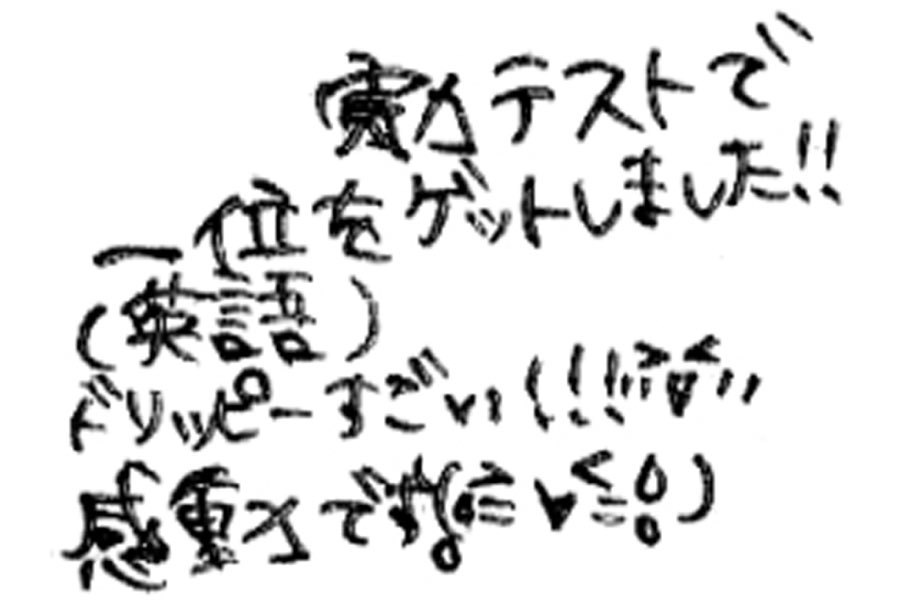 実力テストで
一位をゲットしました!!
(英語)
ドリッピーすごい!!!!
感動です。